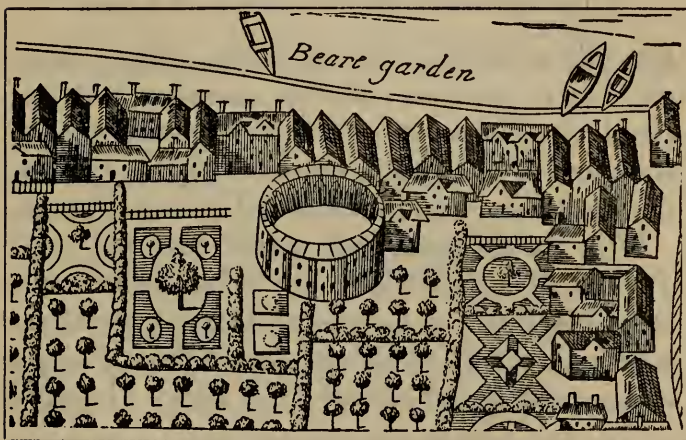 Beare garden